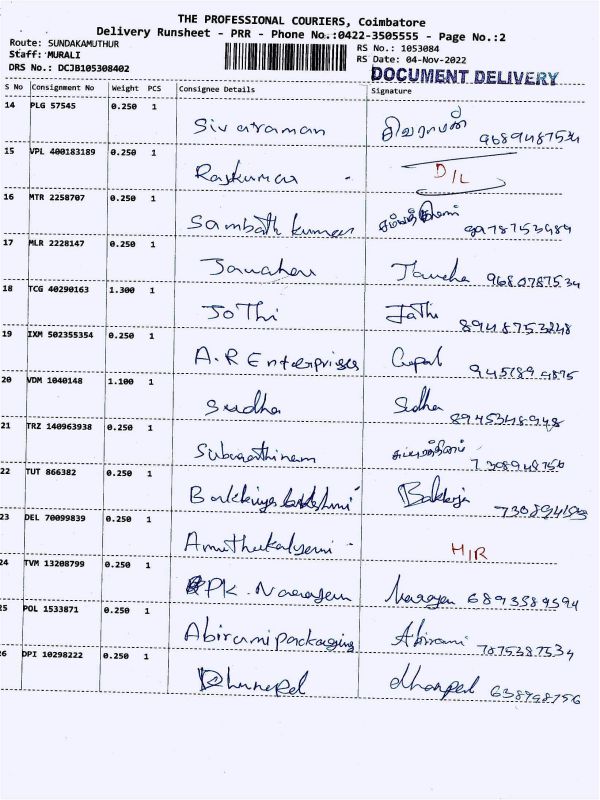 THE PROFESSIONAL COURIERS, Coimbatore
Delivery Runsheet - PRR - Phone No.:0422-3505555 - Page No.:2
Route: SUNDAKAMUTHUR RS No.: 1053084
Staff: MURALI RS Date: 04-Nov-2022
DRS No.: DCJB105308402 DOCUMENT DELIVERY
S No Consignment No Weight PCS Consignee Details Signature
14 PLG 57545 0.250 1
Sivaraman சிவராமன்
15 VPL 400183189 0.250 1
Rajkumar D/L
16 MTR 2258707 0.250 1
Sambath kumar
17 MLR 2228147 0.250 1
Jawahar 9680787534
18 TCG 40290163 1.300 1
JoThi JoThi
19 IXM 502355354 0.250 1
A.R Enterprises Gopal
20 VDM 1040148 1.100 1
Sudha Sudha 8945348948
21 TRZ 140963938 0.250 1
Suburathinam 7308948756
22 TUT 866382 0.250 1
23 DEL 70099839 0.250 1
H/R
24 TVM 13208799 0.250 1
PK. Narayan Narayan 6893589594
25 POL 1533871 0.250 1
Abirami packaging Abirami 7875387534
26 DPI 10298222 0.250 1
dhanpal 638798756